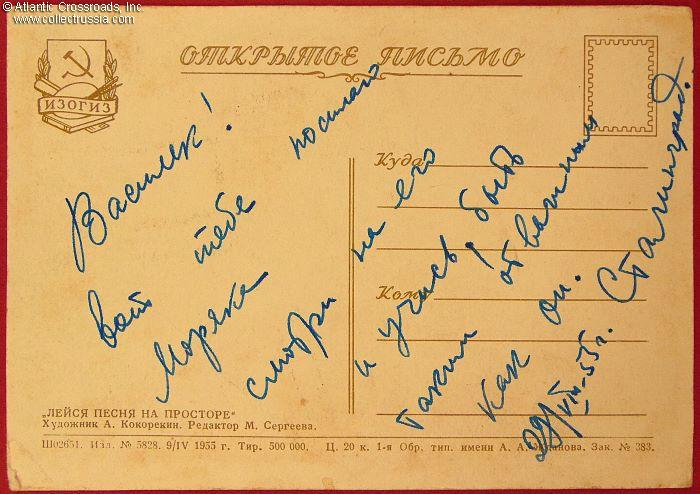 © Atlantic Crossroads, Inc
www.collectrussia.com
ОТКРЫТОЕ ПИСЬМО
ИЗОГИЗ
Василек!
вот тебе посылаю
Моряка
смотри на его
и учись быть
таким отважным
как он.
29/VIII-55 г. Сталинград.
Куда
Кому
„ЛЕЙСЯ ПЕСНЯ НА ПРОСТОРЕ“
Художник А. Кокорекин. Редактор М. Сергеева.
Ш02651. Изд. № 5828. 9/IV 1955 г. Тир. 500 000. Ц. 20 к. 1-я Обр. тип. имени А. А. Жданова. Зак. № 383.